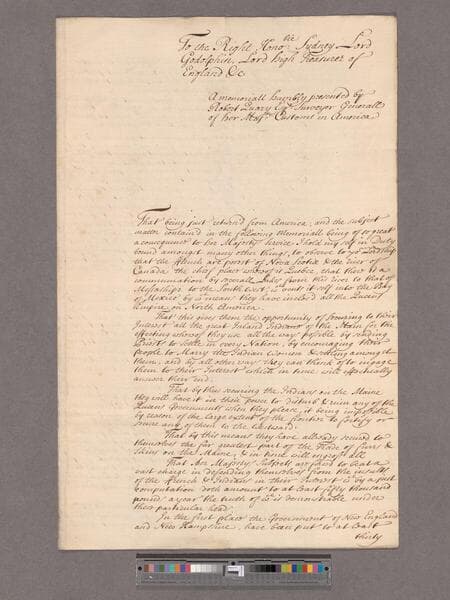 To the Right Hono.ble Sydney Lord
Godolphin, Lord high Treasurer of
England &c
A memoriall humbly presented by
Robert Quary Esqr Surveyor Generall
of her Majtys Customs in America
That being just return'd from America, and the subject
matter contain'd in the following Memoriall being of so great
a consequence to her Majestys Service I hold my self in duty
bound amongst many other things, to observe to yor Lordship
that the French are possest of Nova Scotia & the River of
Canada the chief place whereof is Quebec, that there is a
communication by severall Lakes from this River to that of
Messasippi to the South West, & vents it self into the Bay
of Mexico by wch means they have inclos'd all the Queens
Empire on North America.
That this gives them the opportunity of securing to their
Interest all the great Inland Indians of the Main for the
effecting whereof they use all the ways possible by sending
Priests to settle in every Nation, by encouraging their
people to Marry the Indian Women & settling amongst
them, and by all other ways they can think of to ingage
them to their Interest which in time will effectually
answer their end.
That by thus securing the Indians on the Maine
they will have it in their power to disturb & ruin any of the
Queens Governments when they please, it being impossible
by reason of the large extent of the frontier to fortify or
secure any of them to the Westward.
That by this means they have allready secured to
themselves the far greatest part of the Trade of furrs &
Skins on the Maine, & in time will engross all
That her Majestys Subjects are forced to be at a
vast charge in defending themselves from the insults
of the French & Indians in their Interest wch by a just
computation doth amount to at least fifty thousand
pounds a year the truth of wch is demonstrable under
these particular heads.
In the first place the Government of New England
and New Hampshire, have been put to at least
thirty